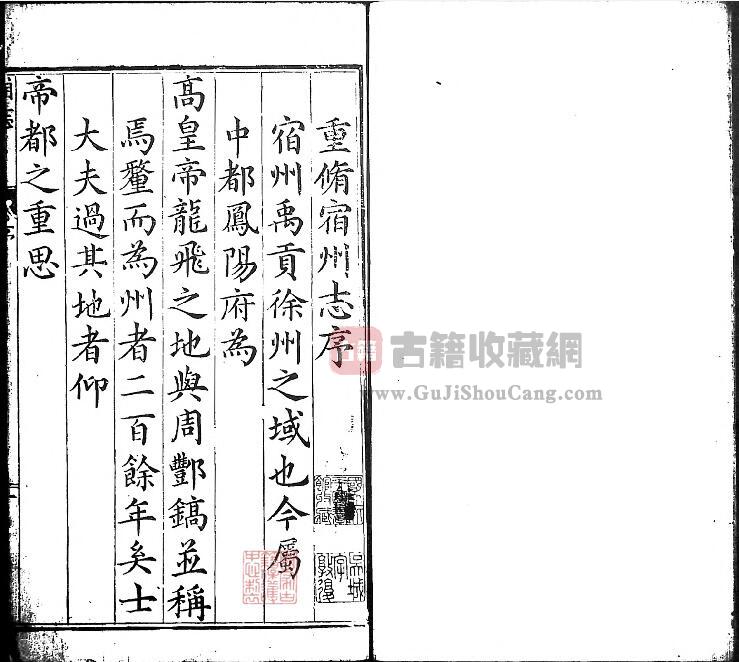 重脩宿州志序
宿州禹貢徐州之域也今屬
中都鳳陽府為
高皇帝龍飛之地與周酆鎬並稱
焉釐而為州者二百餘年矣士
大夫過其地者仰
帝都之重思
古籍
古籍收藏網
www.GuJiShouCang.com